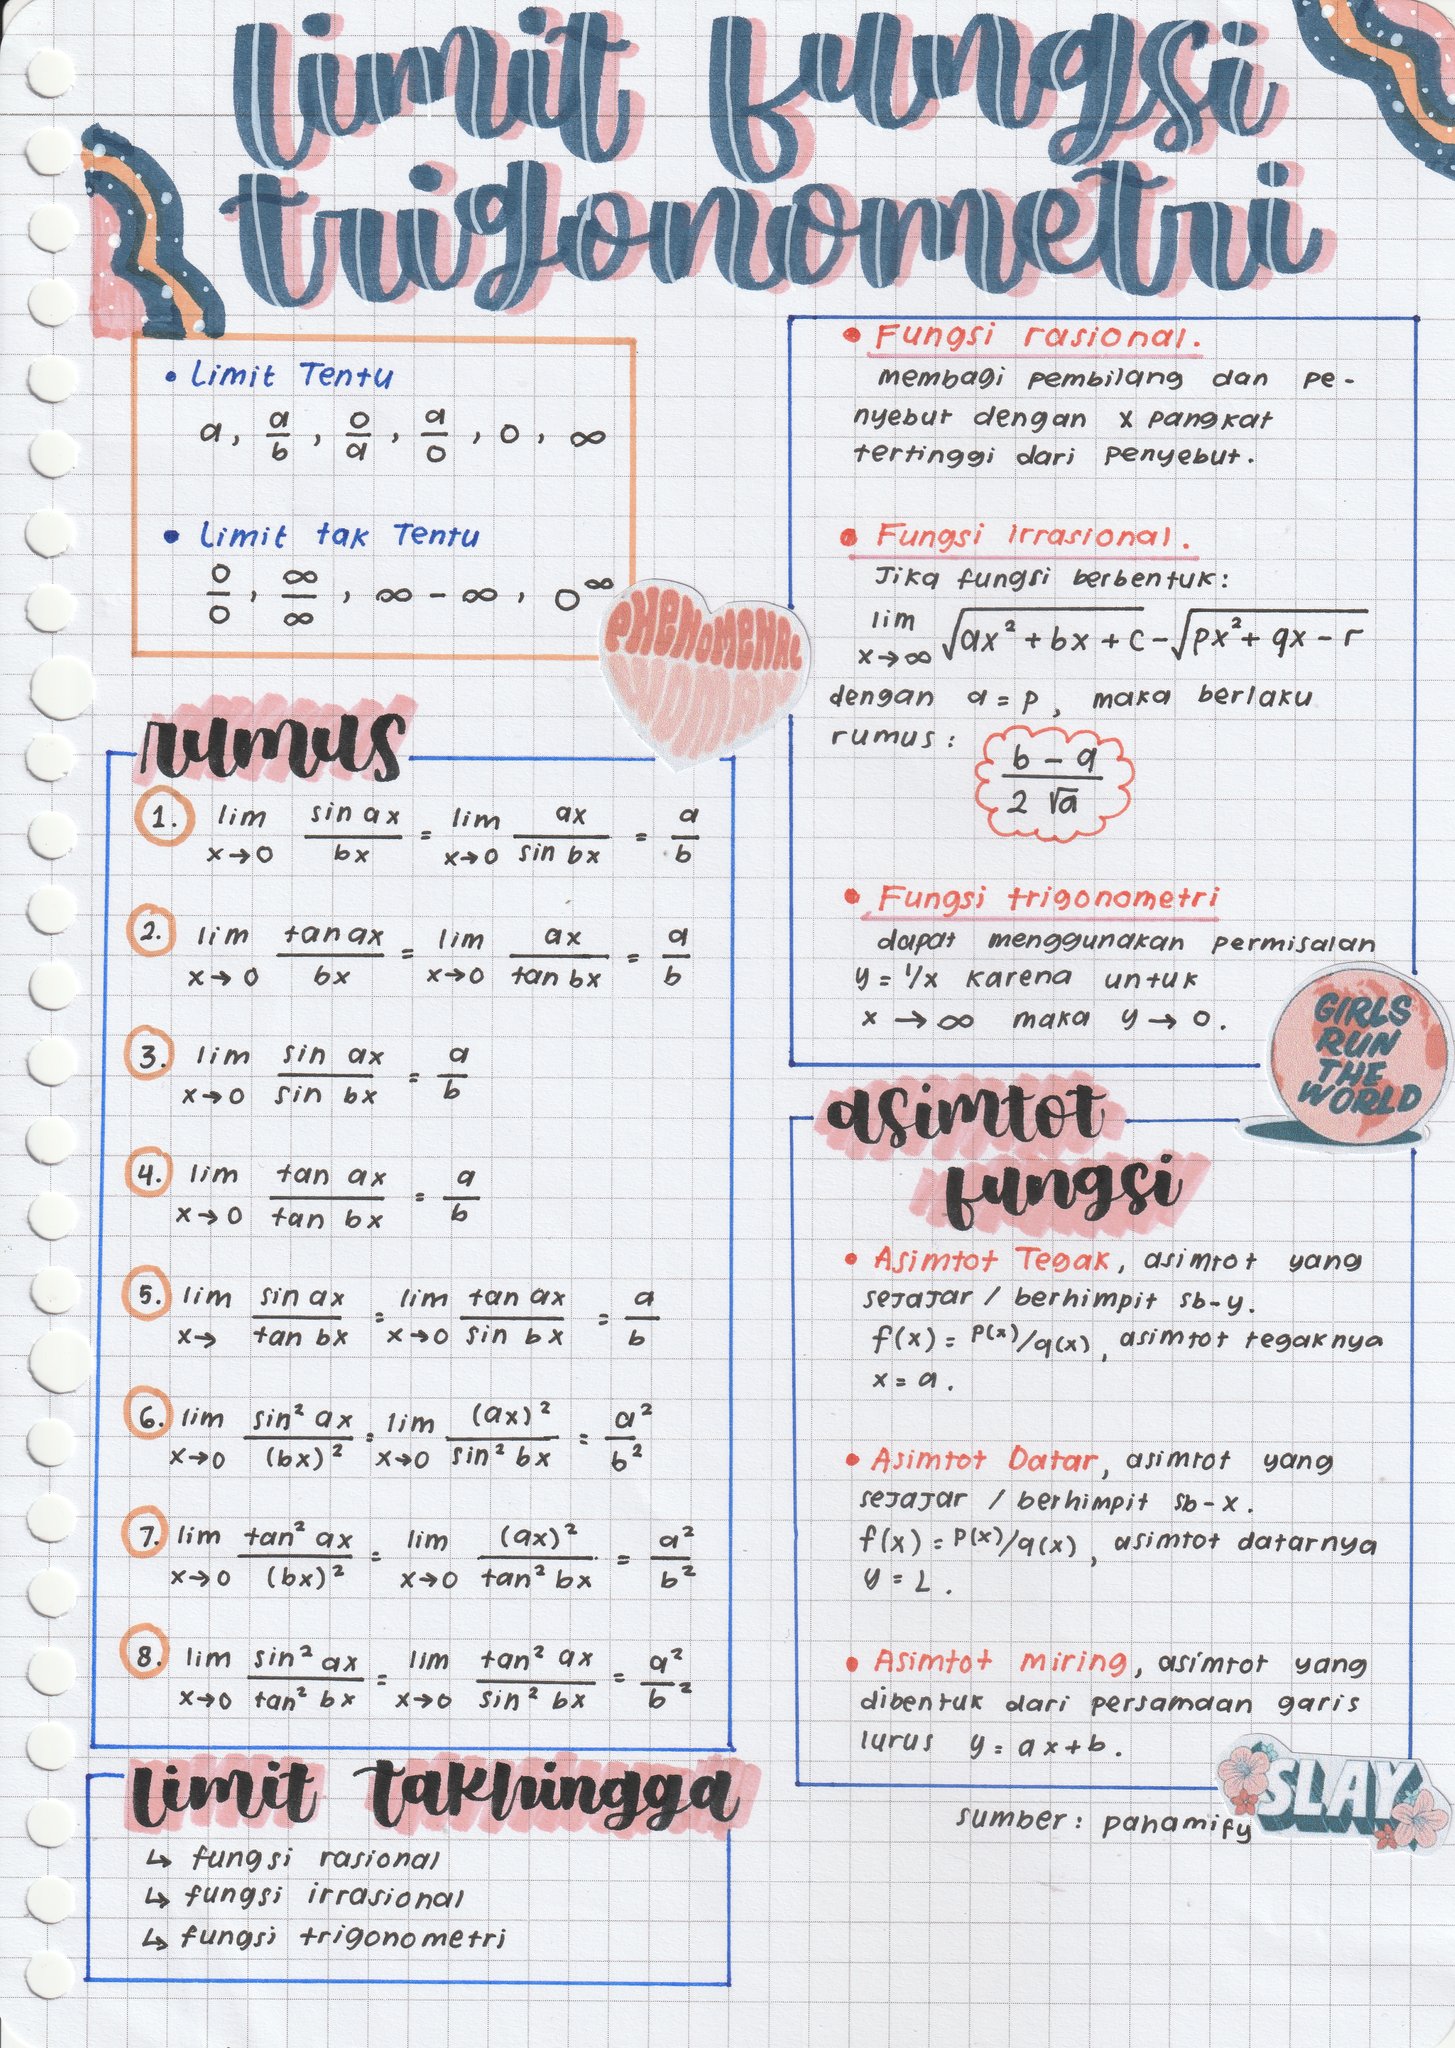 limit fungsi
trigonometri
• Limit Tentu
a, a/b, 0/a, a/0, 0, ∞
• Limit tak Tentu
0/0, ∞/∞, ∞ - ∞, 0^∞
PHENOMENAL
WOMAN
rumus
1. lim x→0 sin ax / bx = lim x→0 ax / sin bx = a/b
2. lim x→0 tan ax / bx = lim x→0 ax / tan bx = a/b
3. lim x→0 sin ax / sin bx = a/b
4. lim x→0 tan ax / tan bx = a/b
5. lim x→ sin ax / tan bx = lim x→0 tan ax / sin bx = a/b
6. lim x→0 sin² ax / (bx)² = lim x→0 (ax)² / sin² bx = a²/b²
7. lim x→0 tan² ax / (bx)² = lim x→0 (ax)² / tan² bx = a²/b²
8. lim x→0 sin² ax / tan² bx = lim x→0 tan² ax / sin² bx = a²/b²
limit takhingga
↳ fungsi rasional
↳ fungsi irrasional
↳ fungsi trigonometri
• Fungsi rasional.
membagi pembilang dan pe-
nyebut dengan x pangkat
tertinggi dari penyebut.
• Fungsi irrasional.
Jika fungsi berbentuk:
lim x→∞ √(ax² + bx + c) - √(px² + qx - r)
dengan a = p, maka berlaku
rumus:
b - q / 2 √a
• Fungsi trigonometri
dapat menggunakan permisalan
y = 1/x karena untuk
x → ∞ maka y → 0.
GIRLS
RUN
THE
WORLD
asimtot
fungsi
• Asimtot Tegak, asimtot yang
sejajar / berhimpit sb-y.
f(x) = p(x)/q(x), asimtot tegaknya
x = a.
• Asimtot Datar, asimtot yang
sejajar / berhimpit sb-x.
f(x) = p(x)/q(x), asimtot datarnya
y = L.
• Asimtot miring, asimtot yang
dibentuk dari persamaan garis
lurus y = ax + b.
SLAY
sumber: pahamify